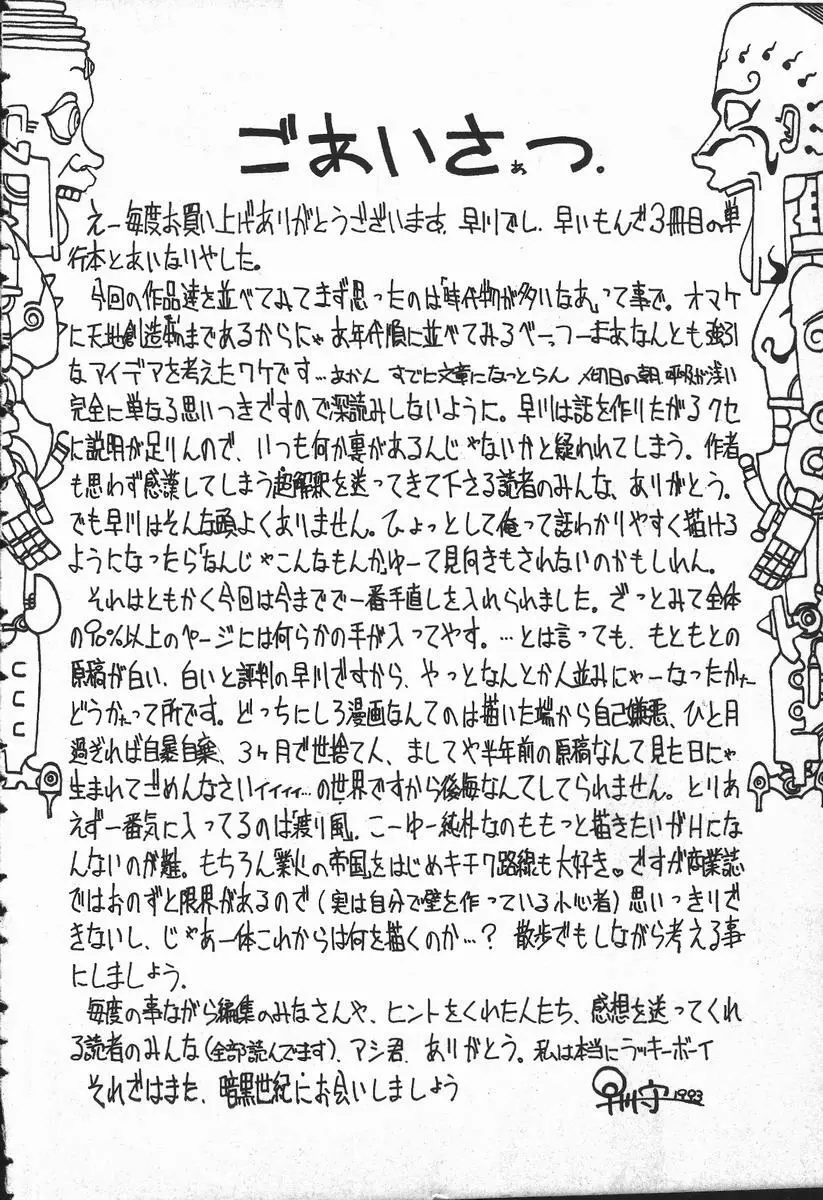 ごあいさぁつ.
えー毎度お買い上げありがとうございます。早川でし. 早いもんで3冊目の単
行本とあいなりやした。
今回の作品達を並べてみてまず思ったのは「時代物が多いなあ」って事で。オマケ
に天地創造まであるからにゃお年代順に並べてみるべーっつーまあなんとも強引
なアイデアを考えたワケです…あかん すでに文章になっとらん 〆切日の朝. 眠りが浅い
完全に単なる思いつきですので深読みしないように。早川は話を作りたがるクセ
に説明が足りんので、いつも何か裏があるんじゃないかと疑われてしまう。作者
も思わず感嘆してしまう超解釈を送ってきて下さる読者のみんな、ありがとう。
でも早川はそんな頭よくありません。ひょっとして俺って話わかりやすく描ける
ようになったら「なんじゃこんなもんか」ゆーて見向きもされないのかもしれん。
それはともかく今回は今までで一番手直しを入れられました。ざっとみて全体
の90%以上のページには何らかの手が入ってやす。…とは言っても、もともとの
原稿が白い、白いと評判の早川ですから、やっとなんとか人並みにゃーなったかなー
どうかなって所です。どっちにしろ漫画なんてのは描いた端から自己嫌悪、ひと月
過ぎれば自暴自棄、3ヶ月で世捨て人、ましてや半年前の原稿なんて見た日にゃ
生まれてごめんなさいィィィィ…の世界ですから後悔なんてしてられません。とりあ
えず一番気に入ってるのは「渡り風」。こーゆー純朴なのももっと描きたいがHにな
んないのが難。もちろん「業火の帝国」をはじめキチク路線も大好き♥ですが商業誌
ではおのずと限界があるので(実は自分で壁を作っている小心者)思いっきりで
きないし、じゃあ一体これからは何を描くのか…? 散歩でもしながら考える事
にしましょう。
毎度の事ながら編集のみなさんや、ヒントをくれた人たち、感想を送ってくれ
る読者のみんな(全部読んでます)、アシ君、ありがとう。私は本当にラッキーボーイ
それではまた、暗黒世紀にお会いしましょう
早川守 1993